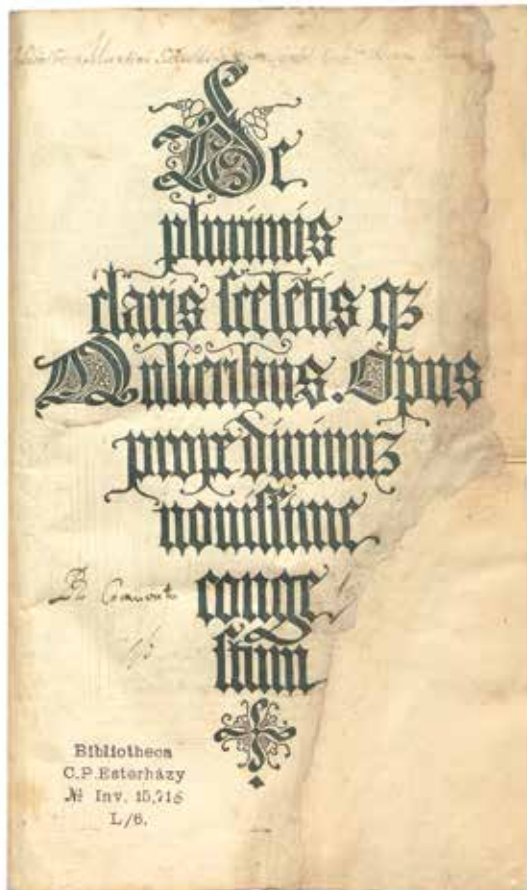 De
plurimis
claris ſceletis qz
Mulieribus. Opus
prope diuinuz
nouiſſime
conge
ſtum
Bibliotheca
C.P.Esterházy
№ Inv. 15,715
L/6.